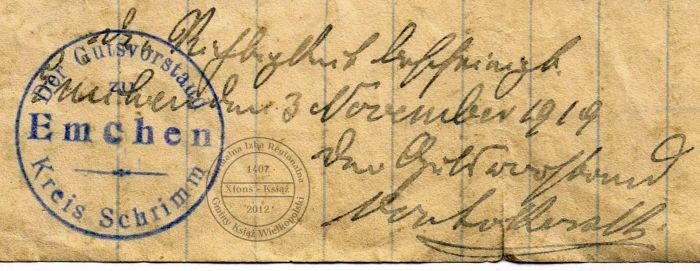 Richtigkeit bescheinigt.
Emchen den 3 November 1919
Der Gutsvorstand
Der Gutsvorstand
zu
Emchen
Kreis Schrimm
Izba Regionalna
1407
Xions - Książ
2012
Gminy Książ Wielkopolski